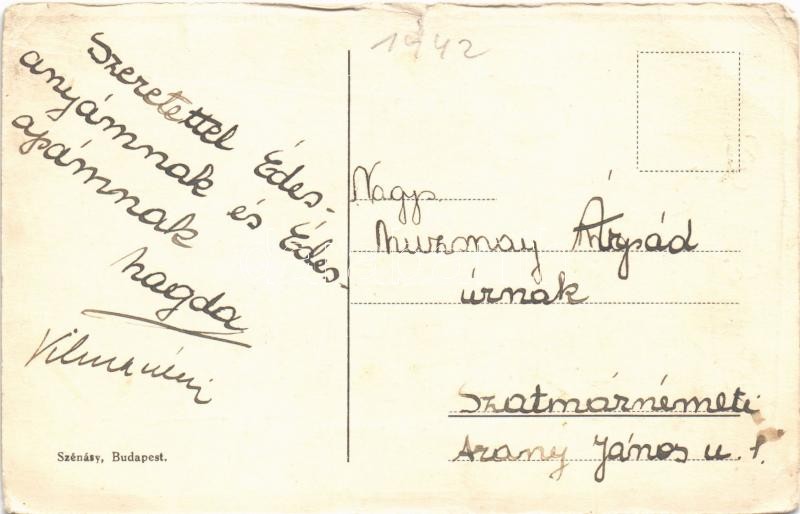 1942
Szeretettel Édes-
anyámnak és Édes-
apámnak
Magda
Vilma néni
Szénásy, Budapest.
Nagys.
Muzsnay Árpád
úrnak
Szatmárnémeti
Arany János u. 1.